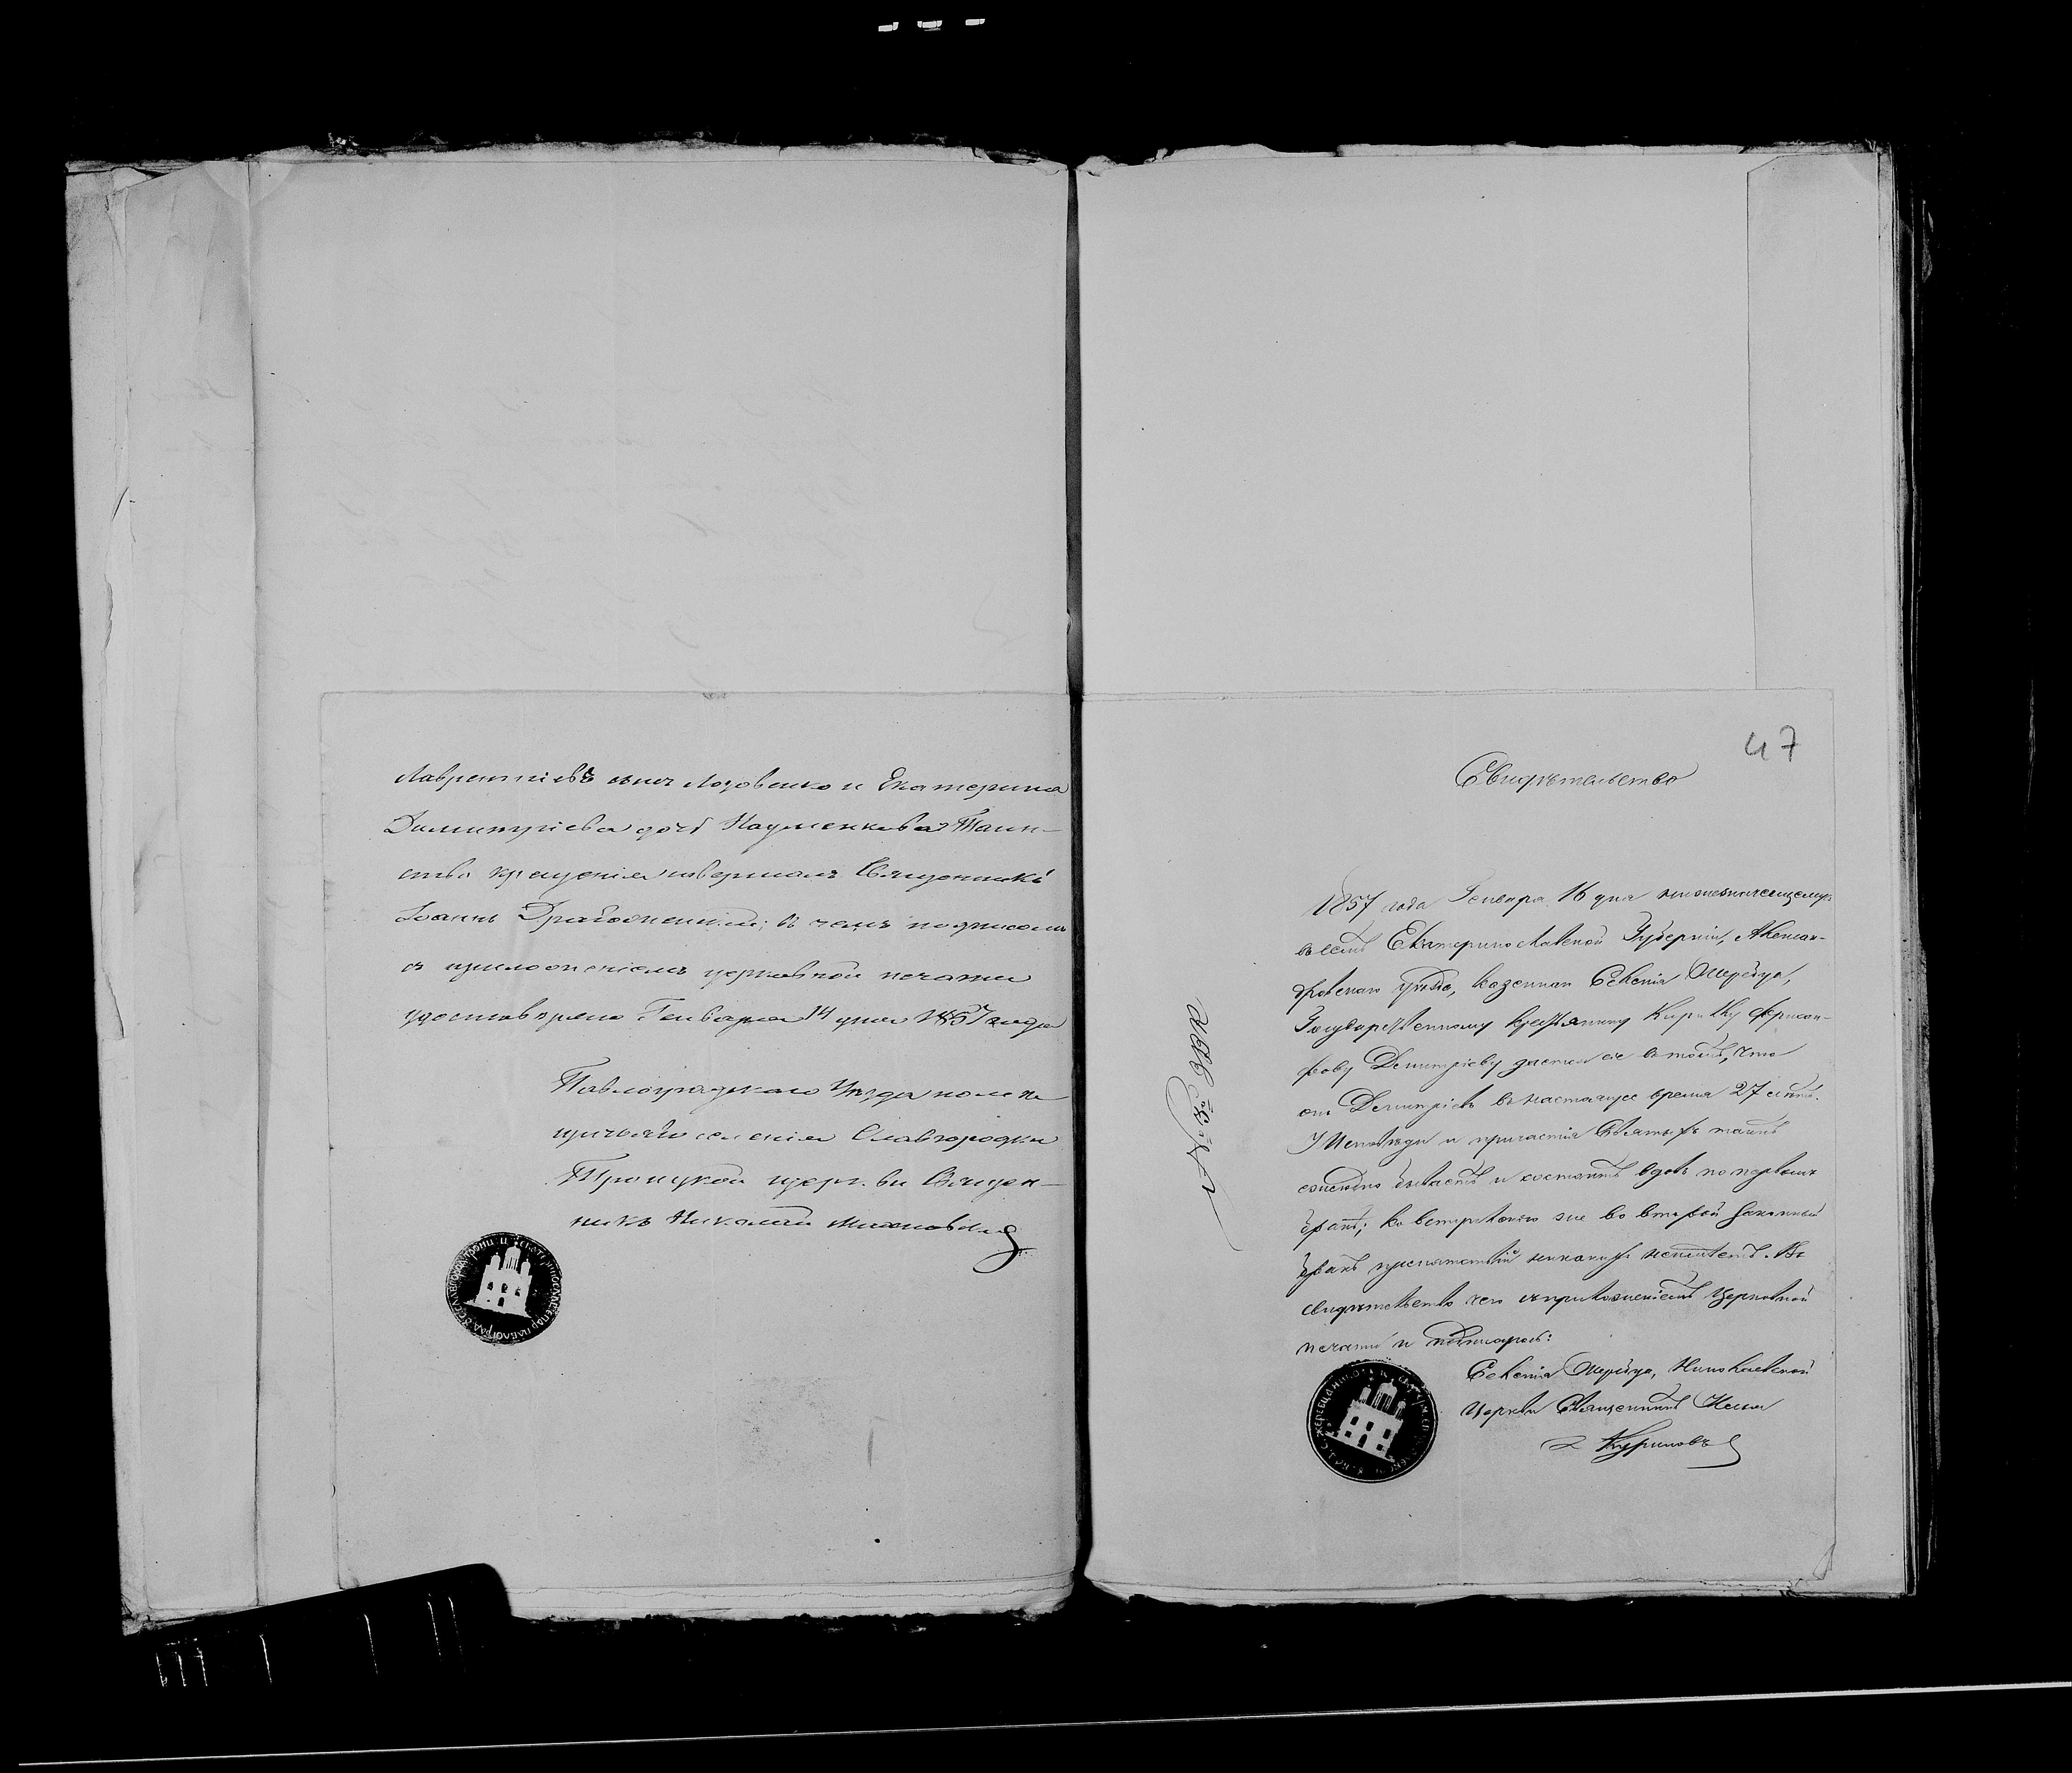 Лаврентіевъ сынъ Лозовенко и Екатерина
Димитріева дочь Науменкова Таин-
ство крещенія совершалъ Священникъ
Іоаннъ Драбожинскій; въ чемъ подписомъ
съ приложеніемъ церковной печати
удостовѣряю Генваря 14 дня 1857 года
Павлоградскаго Уѣзда
селенія Славгородки
Троицкой церкви Священ-
никъ Николай
47
Свидѣтельство
1857 года Генваря 16 дня
въ семъ Екатеринославской Губерніи, Алексан-
дровскаго уѣзда, казеннаго Селенія
Государственному крестьянину Кирику Фирсан-
фову Демитріеву дастся сіе въ томъ, что
онъ Демитріевъ въ настоящее время 27 лѣтъ.
У Исповѣди и причастія Святыхъ таинъ
бываетъ и состоитъ вдовъ по первомъ
бракѣ; ко вступленію же во второй законный
бракъ препятствій никакихъ неимѣетъ. Въ
свидѣтельство чего съ приложеніемъ Церковной
печати и подписуюсь:
Селенія Николаевской
Церкви Священникъ Илья
Куриловъ